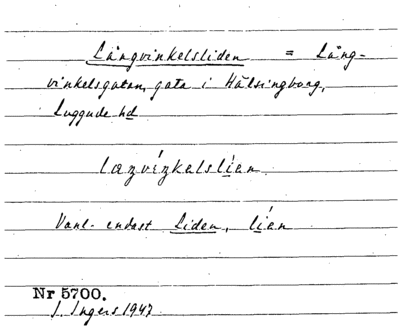 Långvinkelsliden = Lång-
vinkelsgatan, gata i Hälsingborg,
Luggude hd
laŋvíŋkəlslíən
Vanl. endast Liden, líən
Nr 5700.
I. Ingers 1947